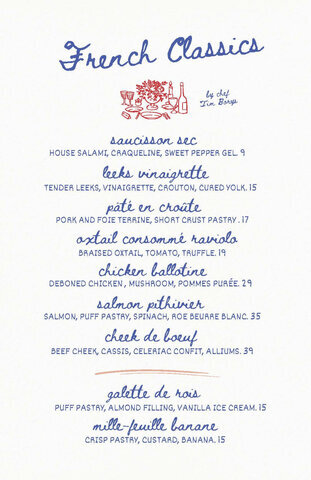 French Classics
by chef
Tim Borys
saucisson sec
HOUSE SALAMI, CRAQUELINE, SWEET PEPPER GEL. 9
leeks vinaigrette
TENDER LEEKS, VINAIGRETTE, CROUTON, CURED YOLK. 15
pâté en croûte
PORK AND FOIE TERRINE, SHORT CRUST PASTRY . 17
oxtail consommé raviolo
BRAISED OXTAIL, TOMATO, TRUFFLE. 19
chicken ballotine
DEBONED CHICKEN , MUSHROOM, POMMES PURÉE. 29
salmon pithivier
SALMON, PUFF PASTRY, SPINACH, ROE BEURRE BLANC. 35
cheek de boeuf
BEEF CHEEK, CASSIS, CELERIAC CONFIT, ALLIUMS. 39
galette de rois
PUFF PASTRY, ALMOND FILLING, VANILLA ICE CREAM. 15
mille-feuille banane
CRISP PASTRY, CUSTARD, BANANA. 15